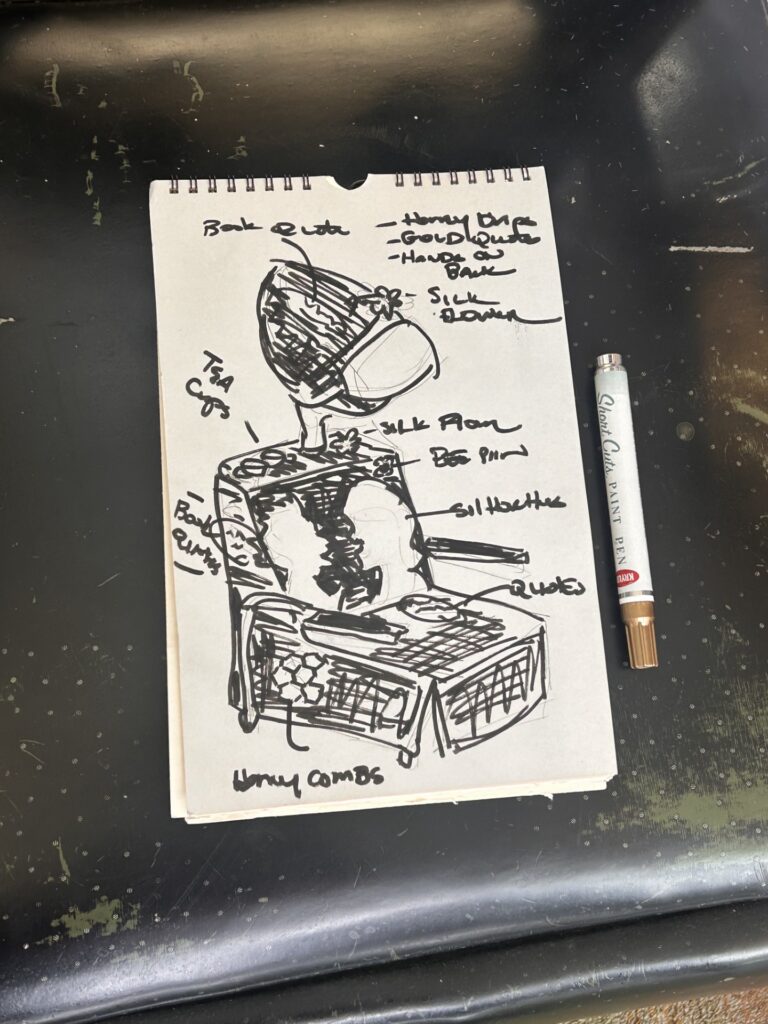 Book Quote
- Honey Drips
- GOLD Quote
- HANDS ON
BACK
- SILK
FLOWER
TEA
Cups
SILK
BEE
Book
Silhouettes
QUOTES
Honey COMBS
Short Cuts PAINT PEN
KRYLON